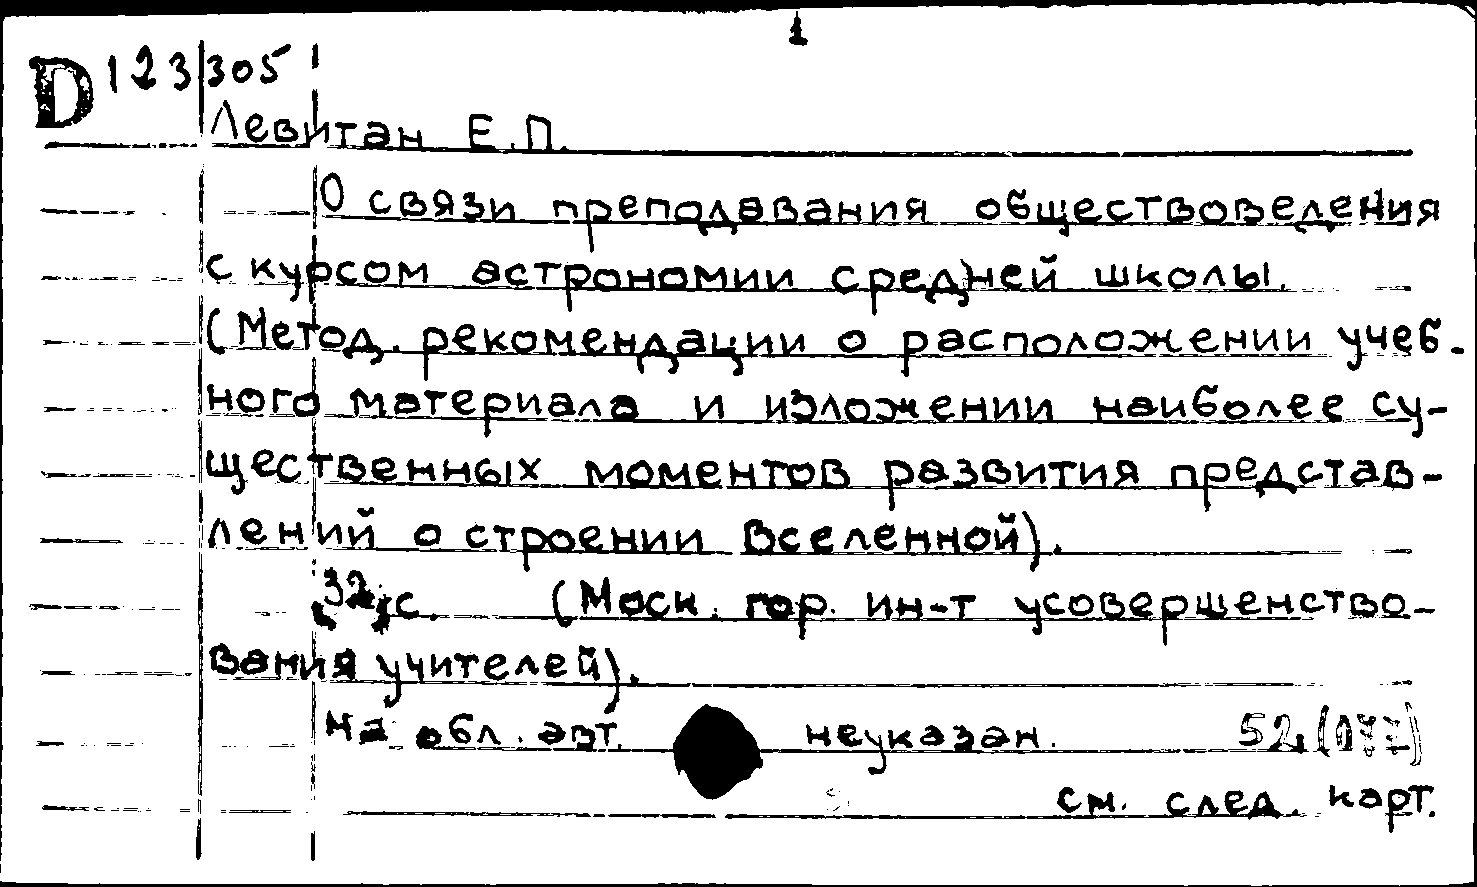 1
D 123/305
Левитан Е.П.
О связи преподавания обществоведения
с курсом астрономии средней школы.
(Метод. рекомендации о расположении учеб-
ного материала и изложении наиболее су-
щественных моментов развития представ-
лений о строении Вселенной).
32 с. (Моск. гор. ин-т усовершенство-
вания учителей).
На обл. авт. не указан. 52(077)
см. след. карт.